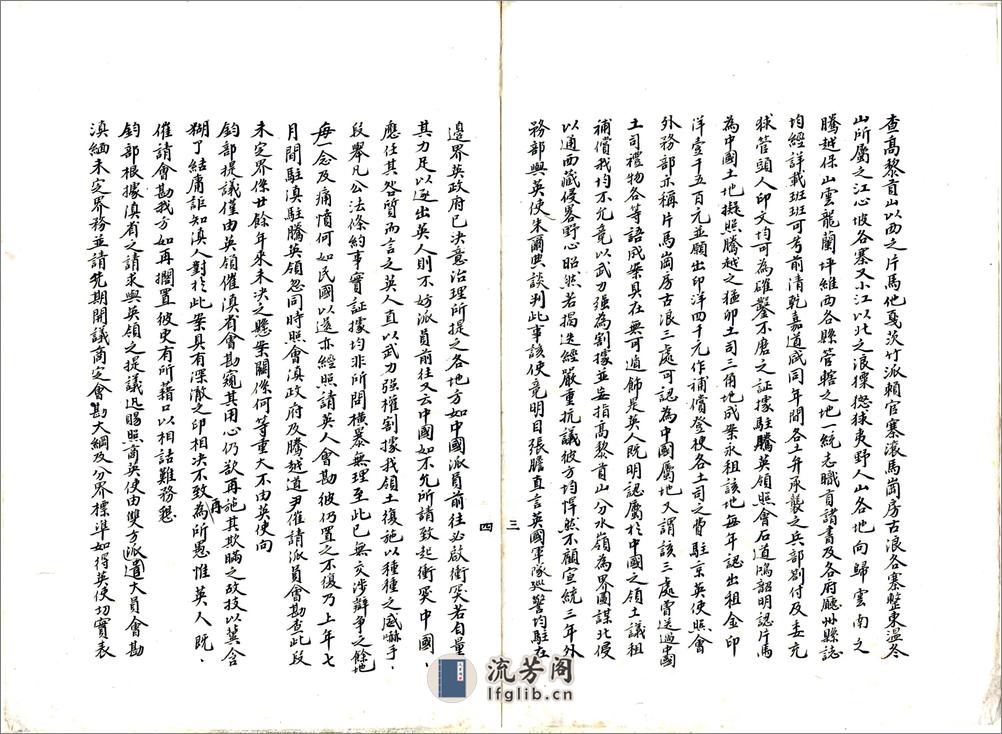 查高黎貢山以西之片馬他戛茨竹派賴官寨滾馬崗房古浪各寨暨東溫冬
山所屬之江心坡各寨又小江以北之浪猓㺜狇夷野人山各地向歸雲南之
騰越保山雲龍蘭坪維西各縣管轄之地一統志職貢諸書及各府廳州縣誌
均經詳載班班可考前清乾嘉道咸同年間各土弁承襲之兵部劄付及委充
狇管頭人印文均可為確鑿不磨之証據駐騰英領照會石道鴻韶明認片馬
為中國土地擬照騰越之猛卯土司三角地成案永租該地每年認出租金印
洋壹千五百元並願出印洋四千元作補償登埂各土司之費駐京英使照會
外務部亦稱片馬崗房古浪三處可認為中國屬地又謂該三處嘗送過中國
土司禮物各等語成案具在無可遁飾是英人既明認屬於中國之領土議租
補償我均不允竟以武力强為割據並並指高黎貢山分水嶺為界圖謀北侵
以通西藏侵畧野心昭然若揭迭經嚴重抗議彼方均悍然不顧宣統三年外
務部與英使朱爾典談判此事該使竟明目張膽直言英國軍隊巡警均駐在
三
邊界英政府已決意治理所提之各地方如中國派員前往必啟衝突若自量
其力足以逐出英人則不妨派員前往又云中國如不允所請致起衝突中國、
應任其咎質而言之英人直以武力强權割據我領土復施以種種之威嚇手、
段舉凡公法條約事實証據均非所問橫暴無理至此已無交涉辯爭之餘地
每一念及痛憤何如民國以還亦經照請英人會勘彼仍置之不復乃上年七
月間駐滇駐騰英領忽同時照會滇政府及騰越道尹催請派員會勘查此段
未定界係廿餘年來未決之懸案關係何等重大不由英使向
鈞部提議僅由英領催滇省會勘窺其用心仍欲再施其欺瞞之故技以冀含
糊了結庸詎知滇人對於此案具有深澈之印相決不致再為所愚惟英人既、
催請會勘我方如再擱置彼更有所藉口以相詰難務懇
鈞部根據滇省之請求與英領之提議迅賜照商英使由雙方派遣大員會勘
滇緬未定界務並請先期開議商定會勘大綱及分界標準如得英使切實表
四
流芳阁
lfglib.cn